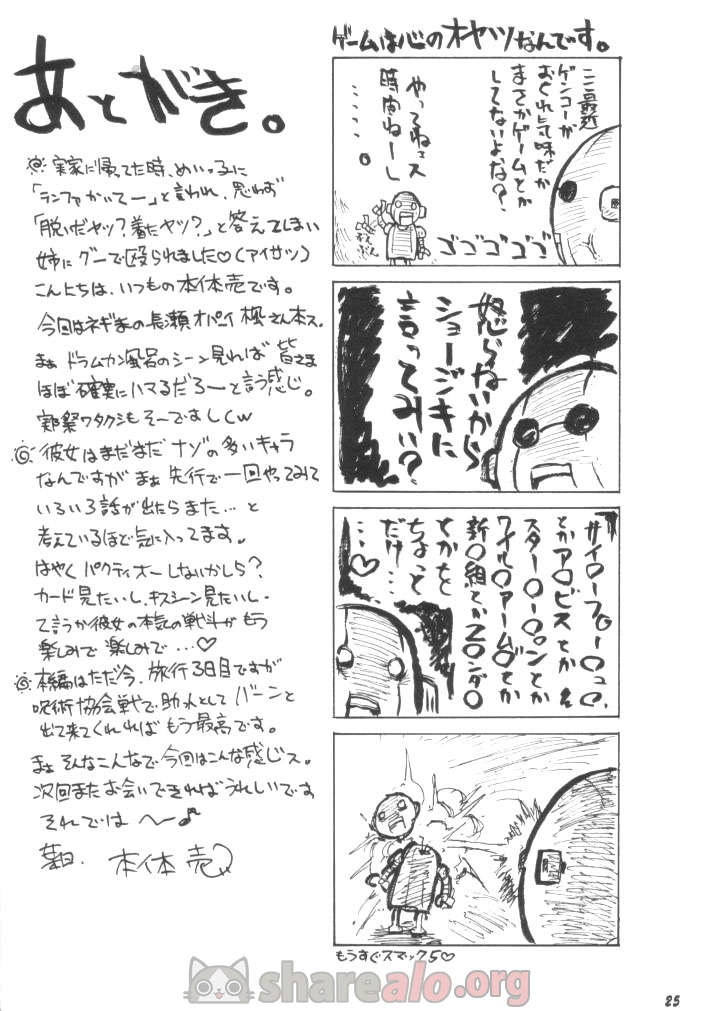 あとがき。
実家に帰ってた時、めいっ子に
「ランファかいてー」と言われ、思わず
「脱いだヤツ?着たヤツ?」と答えてしまい
姉にグーで殴られました♡(アイサツ)
こんにちは、いつもの本体売です。
今回はネギまの長瀬オパーイ楓さん本ス。
まぁドラムカン風呂のシーン見れば皆さま
ほぼ確実にハマるだろーと言う感じ。
実際ワタクシもそーですしくw
彼女はまだまだナゾの多いキャラ
なんですがまぁ先行で一回やってみて
いろいろ話が出たらまた…と
考えているほど気に入ってます。
はやくパクティオーしないかしら?
カード見たいし、キスシーン見たいし、
て言うか彼女の本気の戦斗がもう
楽しみで楽しみで…♡
本編はただ今、旅行3日目ですが
呪術協会戦で助っ人としてバーンと
出て来てくれればもう最高です。
まぁそんなこんなで今回はこんな感じス。
次回またお会いできればうれしいです
それでは〜♪
本体売
ゲームは心のオヤツなんです。
ここ最近
ゲンコーが
おくれ気味だが
まさかゲームとか
してないよな?
やってねェス
時間ねーし
・・・・・。
ゴゴゴゴゴ
怒らないから
ショージキに
言ってみぃ?
とかア〇ビスとか
スター〇ー〇ンとか
ワイル〇アームズとか
新〇組とかZ〇ンダ〇
とかをと
ちょっと
だけ…
…♡
もうすぐスマック5♡
25
sharealo.org